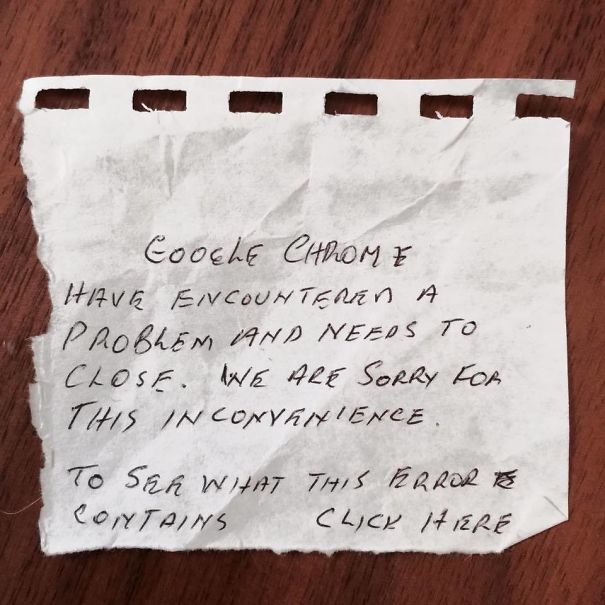 GOOGLE CHROME
HAVE ENCOUNTERED A
PROBLEM AND NEEDS TO
CLOSE. WE ARE SORRY FOR
THIS INCONVENIENCE.
TO SEE WHAT THIS ERROR
CONTAINS CLICK HERE